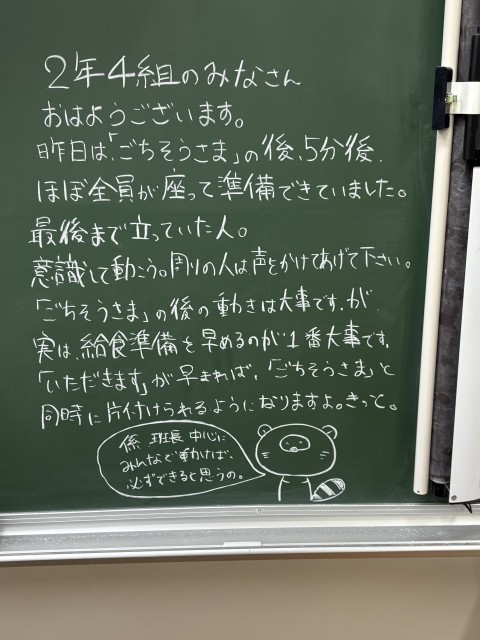 2年4組のみなさん
おはようございます。
昨日は、「ごちそうさま」の後、5分後、
ほぼ全員が座って準備できていました。
最後まで立っていた人。
意識して動こう。周りの人は声をかけてあげて下さい。
「ごちそうさま」の後の動きは大事です。が
実は、給食準備を早めるのが1番大事です。
「いただきます」が早まれば、「ごちそうさま」と
同時に片付けられるようになりますよ。きって。
係 班長 中心に
みんなで動けば、
必ずできると思うの。